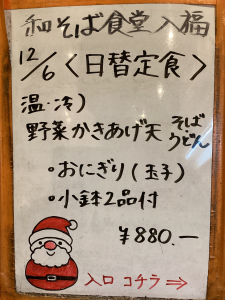 和そば食堂 入福
12/6 〈日替定食〉
温・冷)
野菜かきあげ天 そば
うどん
・おにぎり(玉子)
・小鉢2品付
¥880.—
入口 コチラ⇒